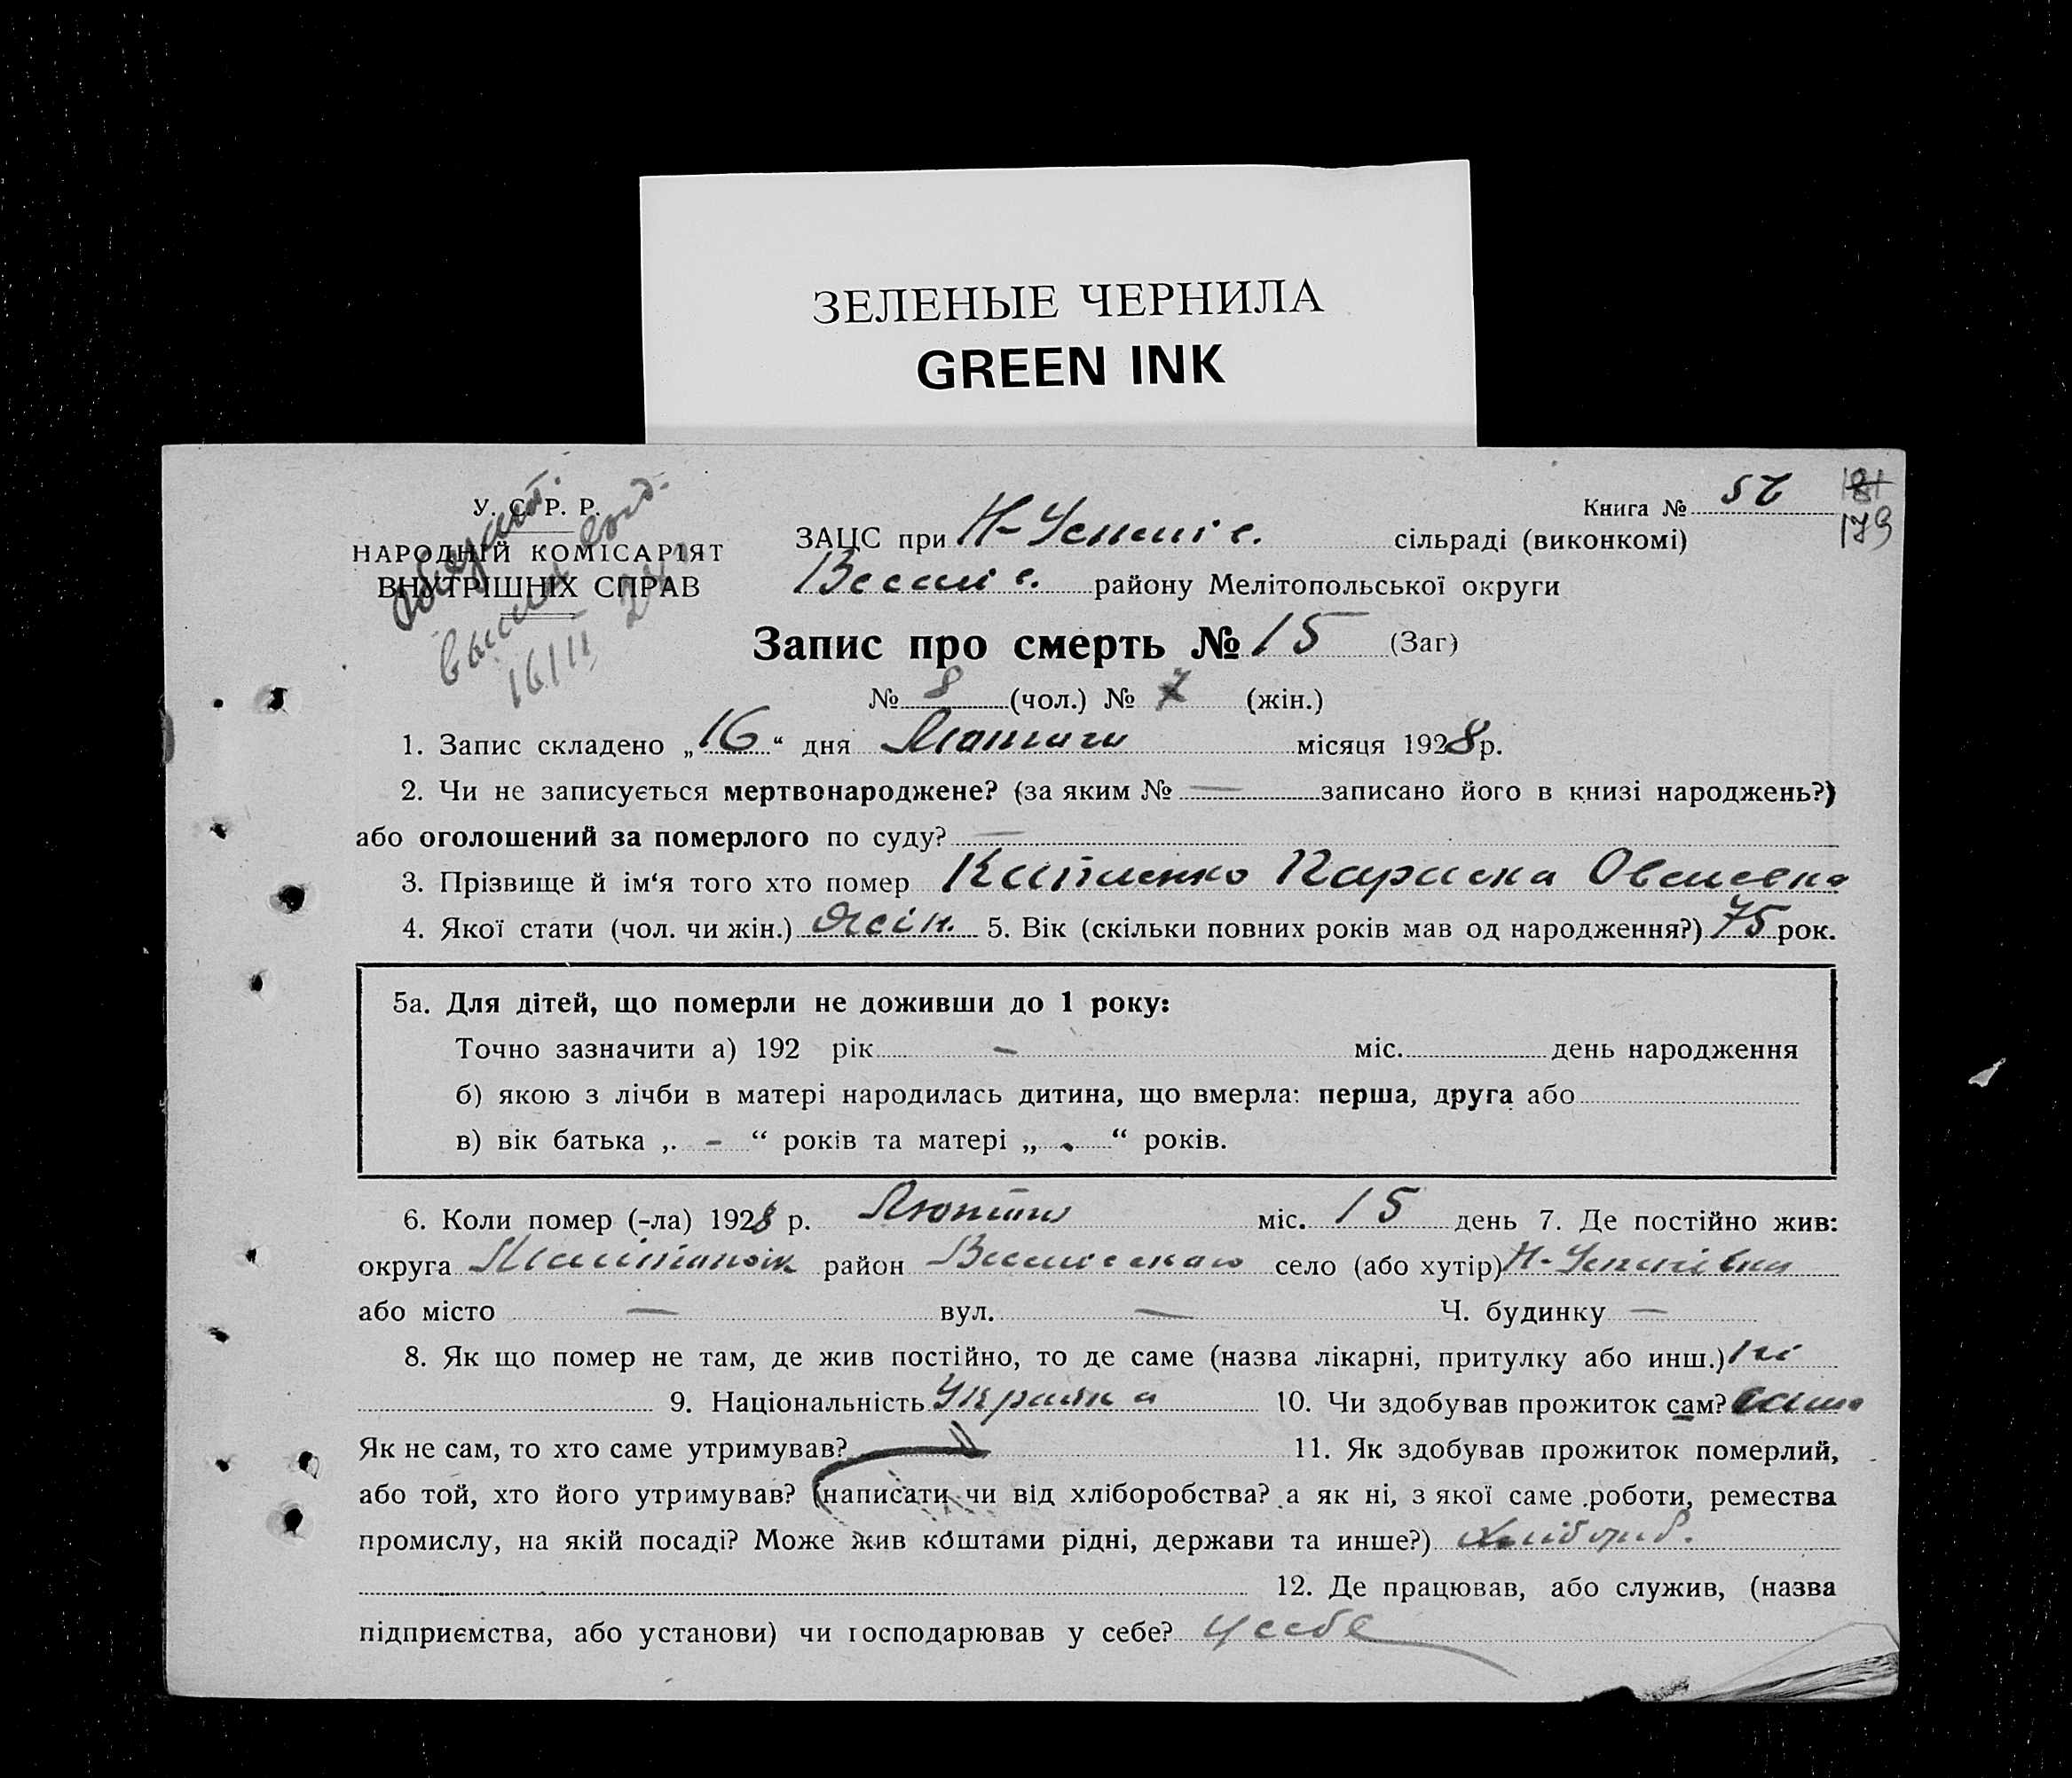 ЗЕЛЕНЫЕ ЧЕРНИЛА
GREEN INK
У. С. Р. Р.
НАРОДНІЙ КОМІСАРІЯТ
ВНУТРІШНІХ СПРАВ
16/II
Книга № 181
179
ЗАЦС при Н-Успенівс. сільраді (виконкомі)
Веселівс. району Мелітопольської округи
Запис про смерть № 15 (Заг)
№ 8 (чол.) № 7 (жін.)
1. Запис складено „16“ дня Лютого місяця 1928 р.
2. Чи не записується мертвонароджене? (за яким № — записано його в книзі народжень?)
або оголошений за померлого по суду? —
3. Прізвище й ім‘я того хто помер Параска Овсиевна
4. Якої стати (чол. чи жін.) жін. 5. Вік (скільки повних років мав од народження?) 75 рок.
5а. Для дітей, що померли не доживши до 1 року:
Точно зазначити а) 192 рік – міс. день народження
б) якою з лічби в матері народилась дитина, що вмерла: перша, друга або
в) вік батька „ – “ років та матері „ - “ років.
6. Коли помер (-ла) 1928 р. Лютий міс. 15 день 7. Де постійно жив:
округа район село (або хутір) Н-Успенівка
або місто — вул. — Ч. будинку —
8. Як що помер не там, де жив постійно, то де саме (назва лікарні, притулку або инш.) ні
9. Національність Українка 10. Чи здобував прожиток сам? сама
Як не сам, то хто саме утримував? — 11. Як здобував прожиток померлий,
або той, хто його утримував? (написати чи від хліборобства? а як ні, з якої саме роботи, ремества
промислу, на якій посаді? Може жив коштами рідні, держави та инше?) хлібороб.
12. Де працював, або служив, (назва
підприємства, або установи) чи господарював у себе? у себе